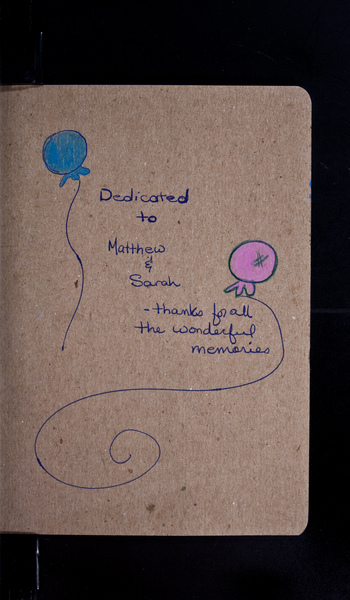 Dedicated
to
Matthew
&
Sarah
- thanks for all
the wonderful
memories